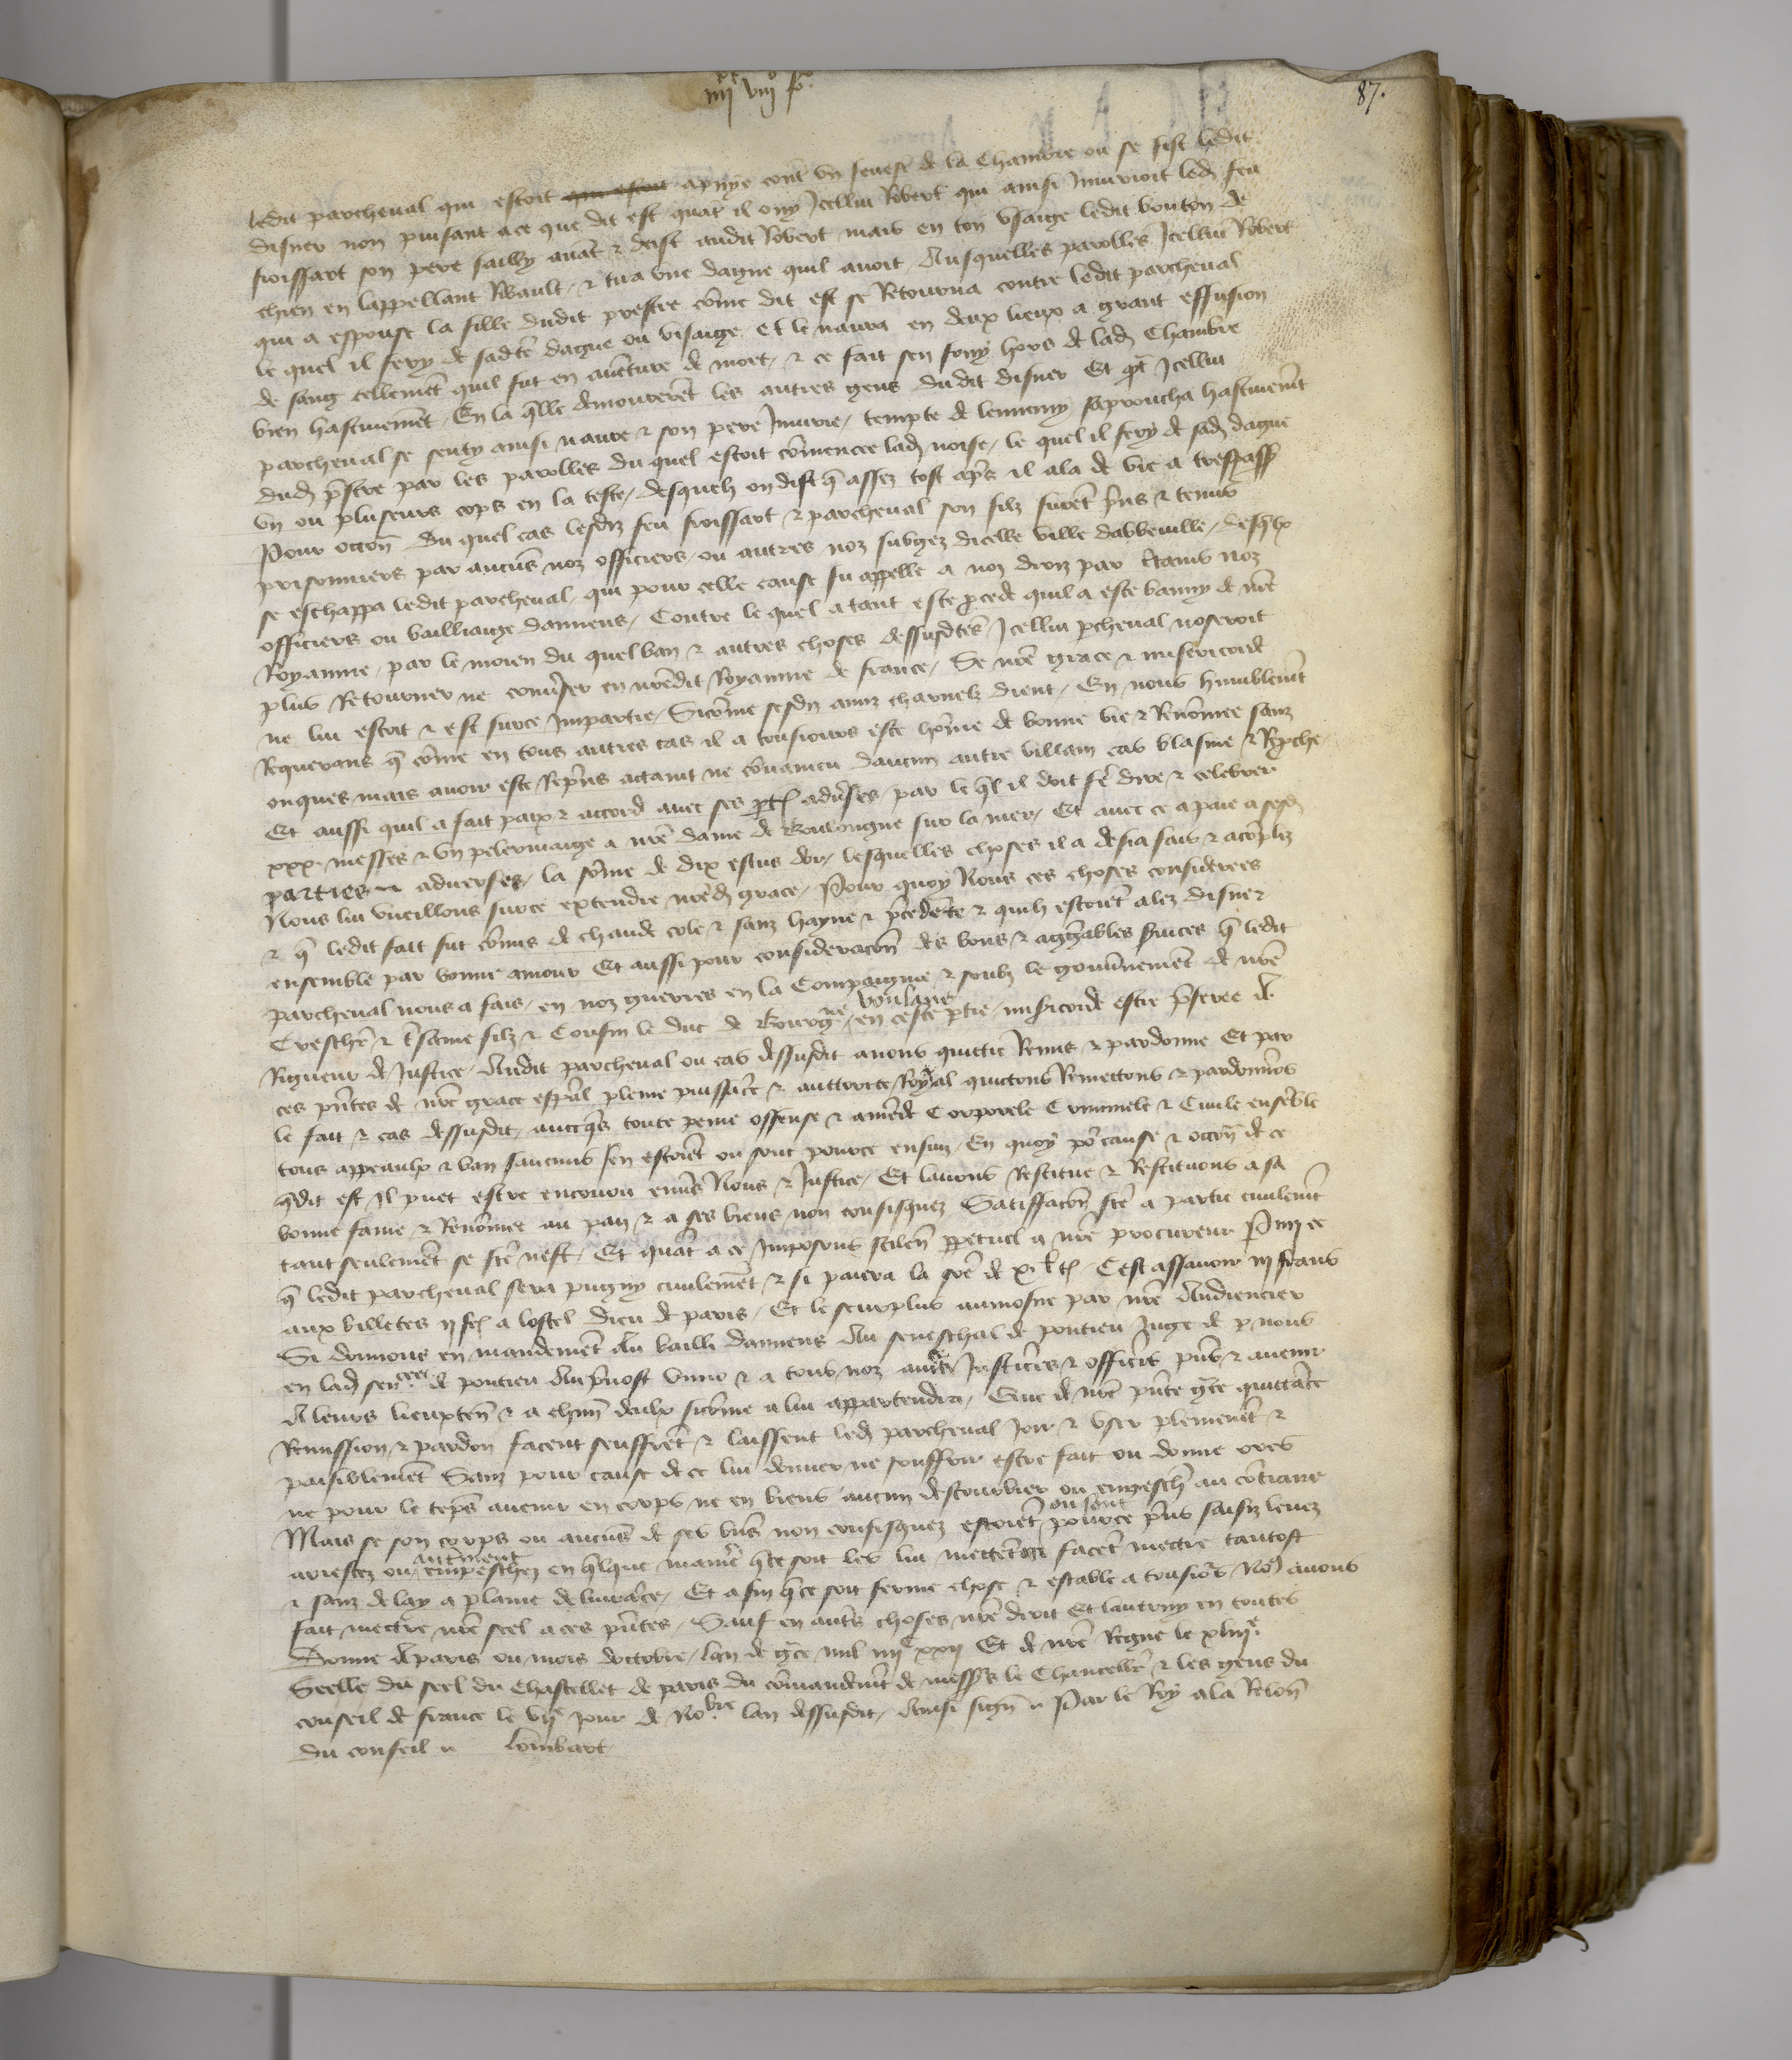 iiii xx viii fo.
87.
ledit parcheval qui estoit qui estoit apuye cont̃ un fenest̃ de la Chambre ou se fist ledit
disner non pensant a ce que dit est quāt il ouy Icellui Robert qui ainsi Iniurioit led feu
froissart son pere sailly avāt & deist audit Robert mais en ton visaige ledit bouton de
chien en lappellant Ribault & tira une dague quil avoit Ausquelles parolles Icellui Robert
qui a espouse la fille dudit prestre cōme dit est se Retourna contre ledit parcheval
le quel il fery de sadte dague ou visaige et le navra en deux lieux a grant effusion
de sang tellemēt quil fut en avēture de mort & ce fait sen fouy hors de lad Chambre
bien hastivemēt En la q̄lle demourerēt les autres gens dudit disner Et q̄t Icellui
parcheval se senty ainsi navre & son pere Iniurie tempte de lennemy saproucha hastivemt̃
dud p̄stre par les parolles du quel estoit cōmencee lad noise le quel il fery de sad dague
un ou pluseurs cops en la teste desquelz on dist q̄ assez tost apr̄s il ala de vie a trespass
Pour occon̄ du quel cas lesdiz feu froissart & parcheval son filz furēt p̄ns & tenus
prisonniers par aucūs noz officiers ou autres noz subgez dicelle ville dabbeville desq̄lx
se eschappa ledit parcheval qui pour celle cause fu appelle a noz droiz par c̄tains noz
officiers ou bailliaige damiens Contre le quel a tant este p̄cede quil a este banny de nr̄e
Royaume par le moien du quel ban & autres choses dessusdtēs Icellui p̄cheval noseroit
plus Retourner ne conv̄ser en nr̄edit Royaume de france Se nr̄e grace & misericorde
ne lui estoit & est sur ce Impartie Sicōme sesdiz amiz charnelz dient En nous humblemt̃
Requerans q̄ cōme en tous autres cas il a tousiours este hōme de bonne vie & Renōmee sanz
onques mais avoir este Rep̄ns actaint ne cōvaincu daucun autre villain cas blasme & Rep̄che
Et aussi quil a fait paix & accord avec ses p̄t adv̄ses par le q̄l il doit fē dire & celebrer
xxx messes & un pelerinaige a nr̄e dame de Boulongne sur la mer Et avec ce a paie a sesd
parties adverses la sōme de dix escus dor lesquelles choses il a desia fais & acōpliz
Nous lui vueillons sur ce extendre nr̄ed grace Pour quoy Nous ces choses considerees
& q̄ ledit fait fut cōmis de chaude cole & sanz hayne p̄cedēte & quilz estoiēt alez disner
ensemble par bonne amour Et aussi pour consideracōn des bons & aggr̄ables s̄vices q̄ ledit
parcheval nous a fais en noz guerres en la Compaignie & soubz le gouv̄nemēt de nr̄e
Treschr̄ & t̄same filz & Cousin le duc de Bourgn̄e voulans en ceste p̄tie mis̄icorde estre p̄feree a
Rigueur de Justice Audit parcheval ou cas dessusdit avons quictie Remis & pardonne Et par
ces p̄ntes de nr̄e grace esp̄al pleine puissāce & auctorite Royal quictons Remectons & pardonn̄os
le fait & cas dessusdit avecq̄s toute peine offense & amēde Corporele Criminele & Civile ensēble
tous appeaulx & ban saucuns sen estoiēt ou sont pour ce ensuiz En quoy po᷑ cause & occon̄ de ce
q̄ dit est Il puet estre encouru env̄s Nous & Justice Et lavons Restitue & Restituons a sa
bonne fame & Renōmee au pais & a ses biens non confisquez Satiffacōn fc̄e a partie civilemt̃
tant seulemēt se fc̄e nest Et quāt a ce Imposons silen̄ p̄petuel a nr̄e procureur Pmy ce
q̄ ledit parcheval sera pugny civilemēt & si paiera la sōe de xi l t Cest assavoir iii frans
aux billetes ii fr a lostel dieu de paris Et le seurplus aumosne par nr̄e Audiencier
Si donnons en mandemēt Au bailli damiens Au seneschal de pontieu Juge de p nous
en lad sen̄cee de pontieu Au p̄vost Vimeu & a tous noz autr̄s Justic̄rs & officr̄s p̄ns & avenir
A leurs lieuxten̄ & a chūn deulx sicōme a lui appartendra Que de nr̄e p̄nte gr̄ce quittāce
Remission & pardon facent seuffrēt & laissent led parcheval Joir & user plenemēt &
paisiblemēt Sanz pour cause de ce lui donner ne souffrir estre fait ou donne ores
ne pour le tēps avenir en corps ne en biens aucun destourbier ou empeschr̄ au cōtraire
Mais se son corps ou aucūs de ses biēs non confisquez estoiēt ou sont pour ce p̄ns saisiz levez
arrestez ou autrement empeschez en q̄lque manr̄e q̄ ce soit les lui mectēt facēt mectre tantost
& sanz delay a plaine delivrāce Et afin q̄ ce soit ferme chose & estable a tousio᷑s No᷒ avons
fait mectre nr̄e seel a ces p̄ntes Sauf en autr̄s choses nr̄e droit Et lautruy en toutes
Donne a paris ou mois doctobre lan de gr̄ce mil iiiic xxii Et de nr̄e Regne le xliiie
Seelle du seel du Chastellet de paris du cōmandemt̃ de mess̄rs le Chancellr̄ & les gens du
conseil de france le viie jour de Nobre lan dessusdit Ainsi sign̄ Par le Roy a la Relōn
du conseil Lōmbart